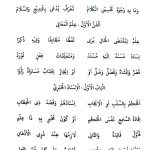 وَمَا بِهِ وُجُوهُ تَحْسِينِ الْكَلَامْ تُعْرَفُ يُدْعَى بِالْبَدِيعِ وَالسَّلَامْ
الْفَنُّ الْأَوَّلُ: عِلْمُ الْمَعَانِي
عِلْمٌ بِهِ لِمُقْتَضَى الْحَالِ يُرَى لَفْظًا مُطَابِقًا وَفِيهِ ذُكِرَا
إِسْنَادٌ مُسْنَدٌ إِلَيْهِ مُسْنَدُ وَمُتَعَلِّقَاتُ فِعْلٍ تُورَدُ
قَصْرٌ وَإِنْشَاءٌ وَفَصْلٌ وَصْلٌ أَوْ إِيجَازٌ إِطْنَابٌ مُسَاوَاةٌ رَأَوْا
الْبَابُ الْأَوَّلُ: الْإِسْنَادُ الْخَبَرِيُّ
الْحُكْمُ بِالسَّلْبِ أَوِ الْإِيجَابِ إِسْنَادُهُمْ وَقَصْدُ ذِي الْخِطَابِ
إِفَادَةُ السَّامِعِ نَفْسَ الْحُكْمِ أَوْ كَوْنَ مُخْبِرٍ بِهِ ذَا عِلْمِ
فَأَوَّلٌ فَائِدَةٌ وَالثَّانِي لَازِمُهَا عِنْدَ ذَوِي الْأَذْهَانِ